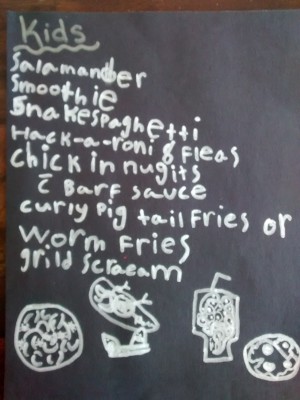 Kids
Salamander
Smoothie
Snakespaghetti
Hack-a-roni & Fleas
chick in nugits
c̄ Barf sauce
curly Pig tail fries or
worm fries
grild scraeam